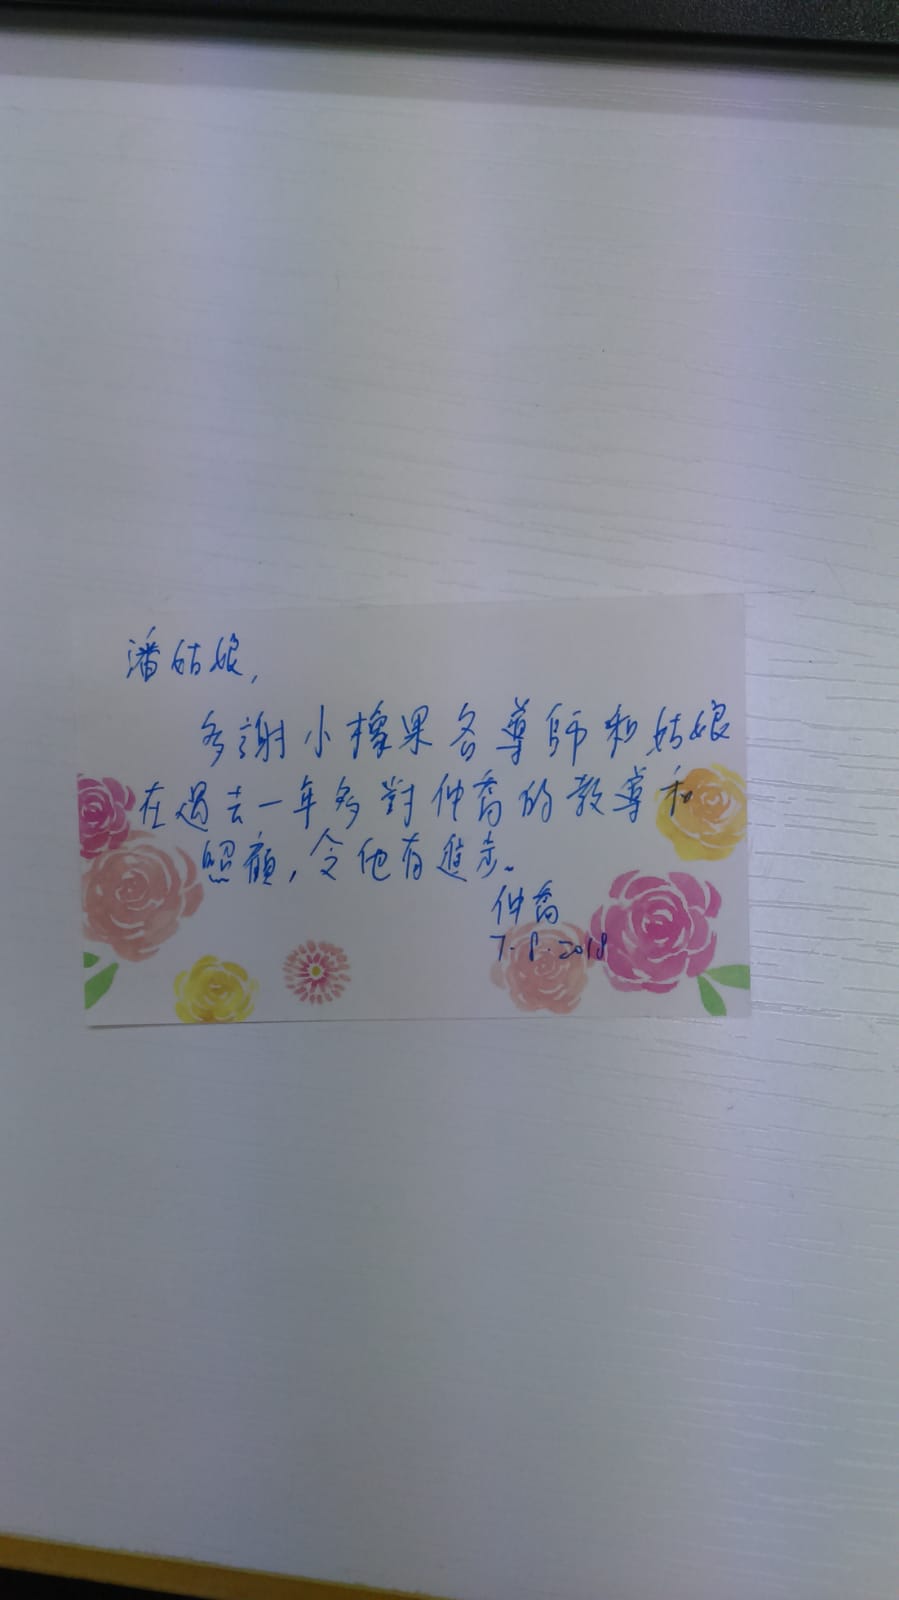 潘姑娘,
多謝小橡果各導師和姑娘
在過去一年多對仲喬的教導和
照顧,令他有進步。
仲喬
7.8.2018